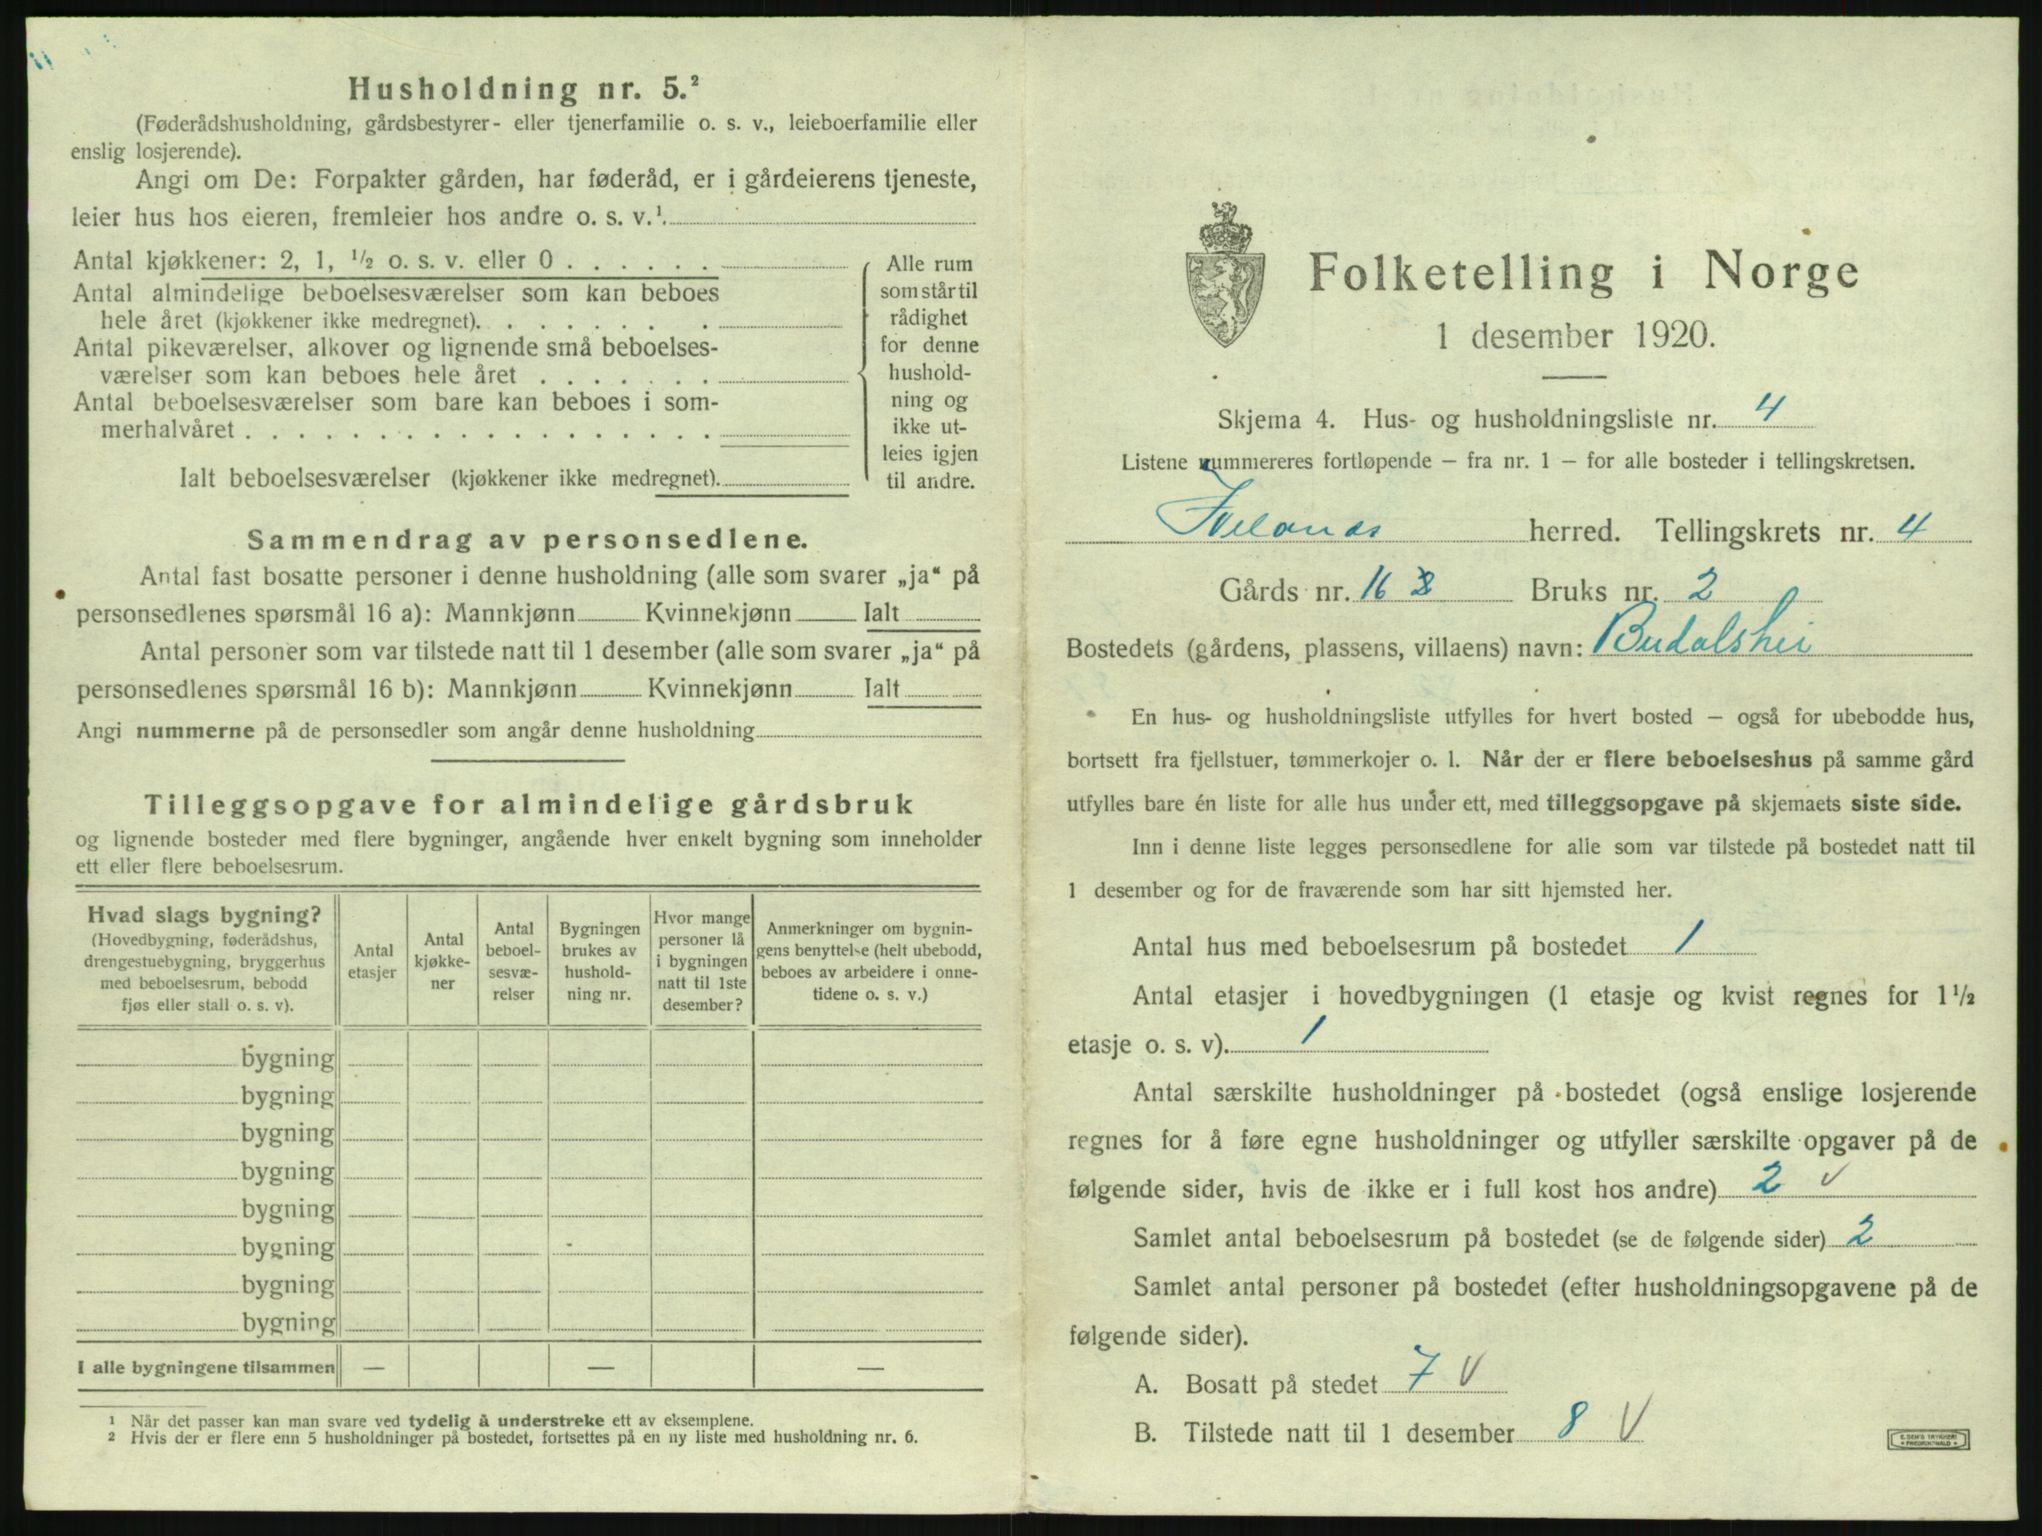 Husholdning nr. 5.²
(Føderådshusholdning, gårdsbestyrer- eller tjenerfamilie o. s. v., leieboerfamilie eller
enslig losjerende).
Angi om De: Forpakter gården, har føderåd, er i gårdeierens tjeneste,
leier hus hos eieren, fremleier hos andre o. s. v.¹.
Antal kjøkkener: 2, 1, ½ o. s. v. eller 0 . . . . . .
Antal almindelige beboelsesværelser som kan beboes
hele året (kjøkkener ikke medregnet). . . . . . . .
Antal pikeværelser, alkover og lignende små beboelses-
værelser som kan beboes hele året . . . . . . .
Antal beboelsesværelser som bare kan beboes i som-
merhalvåret . . . . . . . . . . . . . . . . . .
Ialt beboelsesværelser (kjøkkener ikke medregnet).
Alle rum
som står til
rådighet
for denne
hushold-
ning og
ikke ut-
leies igjen
til andre.
Sammendrag av personsedlene.
Antal fast bosatte personer i denne husholdning (alle som svarer „ja“ på
personsedlenes spørsmål 16 a): Mannkjønn Kvinnekjønn Ialt
Antal personer som var tilstede natt til 1 desember (alle som svarer „ja“ på
personsedlenes spørsmål 16 b): Mannkjønn Kvinnekjønn Ialt
Angi nummerne på de personsedler som angår denne husholdning
Tilleggsopgave for almindelige gårdsbruk
og lignende bosteder med flere bygninger, angående hver enkelt bygning som inneholder
ett eller flere beboelsesrum.
Hvad slags bygning?
(Hovedbygning, føderådshus,
drengestuebygning, bryggerhus
med beboelsesrum, bebodd
fjøs eller stall o. s. v).
Antal
etasjer
Antal
kjøkke-
ner
Antal
beboel-
sesvæ-
relser
Bygningen
brukes av
hushold-
ning nr.
Hvor mange
personer lå
i bygningen
natt til 1ste
desember?
Anmerkninger om bygnin-
gens benyttelse (helt ubebodd,
beboes av arbeidere i onne-
tidene o. s. v.)
bygning
bygning
bygning
bygning
bygning
bygning
bygning
bygning
I alle bygningene tilsammen — — —
¹ Når det passer kan man svare ved tydelig å understreke ett av eksemplene.
² Hvis der er flere enn 5 husholdninger på bostedet, fortsettes på en ny liste med husholdning nr. 6.
Folketelling i Norge
1 desember 1920.
Skjema 4. Hus- og husholdningsliste nr. 4
Listene nummereres fortløpende – fra nr. 1 – for alle bosteder i tellingskretsen.
Ivelands herred. Tellingskrets nr. 4
Gårds nr. 16 Bruks nr. 2
Bostedets (gårdens, plassens, villaens) navn: Budalshei
En hus- og husholdningsliste utfylles for hvert bosted – også for ubebodde hus,
bortsett fra fjellstuer, tømmerkojer o. l. Når der er flere beboelseshus på samme gård
utfylles bare én liste for alle hus under ett, med tilleggsopgave på skjemaets siste side.
Inn i denne liste legges personsedlene for alle som var tilstede på bostedet natt til
1 desember og for de fraværende som har sitt hjemsted her.
Antal hus med beboelsesrum på bostedet 1
Antal etasjer i hovedbygningen (1 etasje og kvist regnes for 1½
etasje o. s. v). 1
Antal særskilte husholdninger på bostedet (også enslige losjerende
regnes for å føre egne husholdninger og utfyller særskilte opgaver på de
følgende sider, hvis de ikke er i full kost hos andre) 2 V
Samlet antal beboelsesrum på bostedet (se de følgende sider) 2
Samlet antal personer på bostedet (efter husholdningsopgavene på de
følgende sider).
A. Bosatt på stedet 7 V
B. Tilstede natt til 1 desember 8 V